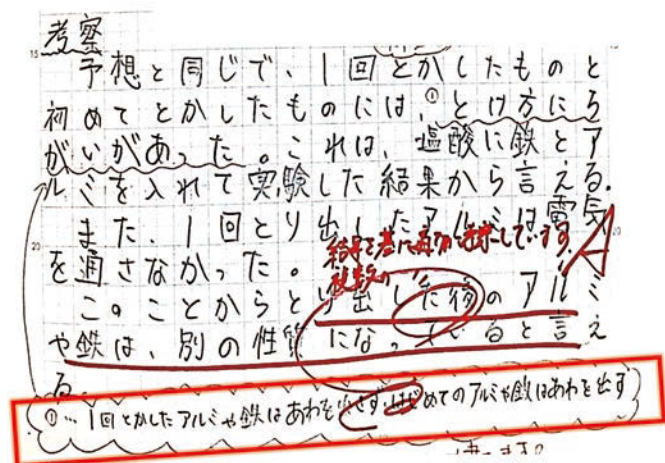 考察
予想と同じで、1回とかしたものと
初めてとかしたものには、①とけ方にち
がいがあった。これは、塩酸に鉄とア
ルミを入れて実験した結果から言える。
また、1回とり出したアルミは電気
を通さなかった。
結果を基に
複数の
A
このことからとり出した後のアルミ
や鉄は、別の性質になっていると言え
る。
①…1回とかしたアルミや鉄はあわを出さず、はじめてのアルミや鉄はあわを出す
15
20